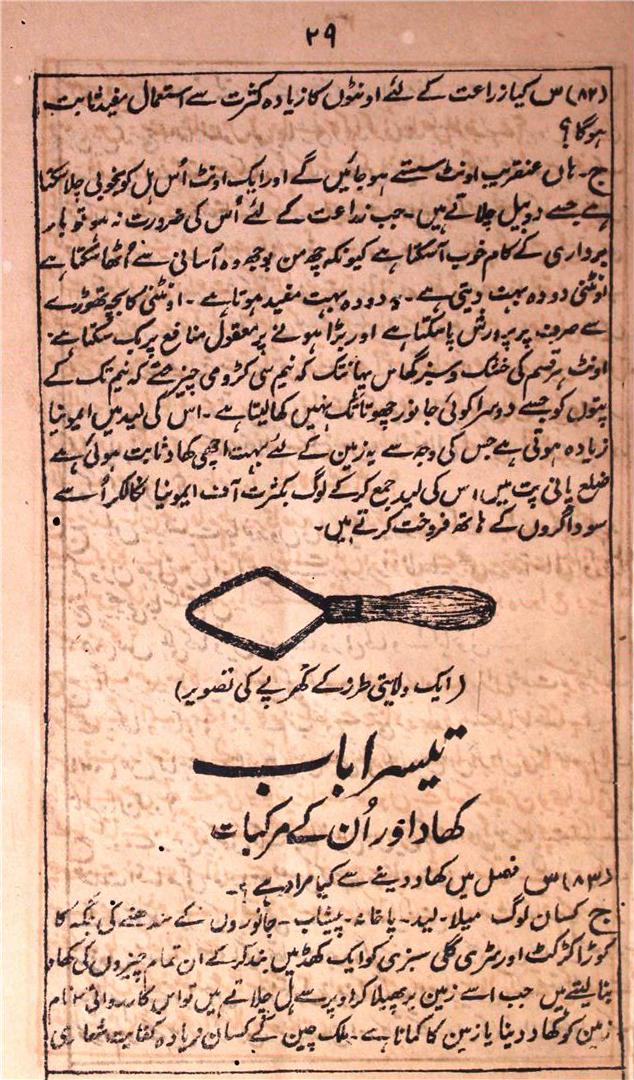 ۲۹
(۸۲) س کیا زراعت کے لئے اونٹوں کا زیادہ کثرت سے استعمال مفید ثابت
ہوگا؟
ج۔ ہاں عنقریب اونٹ سستے ہو جائیں گے اور ایک اونٹ اُس ہل کو بخوبی چلا سکتا
ہے جسے دو بیل چلاتے ہیں۔ جب زراعت کے لئے اُس کی ضرورت نہ ہو تو بار
برداری کے کام خوب آسکتا ہے کیونکہ چھ من بوجھ وہ آسانی سے اُٹھا سکتا ہے
اونٹنی دودہ بہت دیتی ہے۔ یہ دودہ بہت مفید ہوتا ہے۔ اونٹنی کا بچہ تھوڑے
سے صرفہ پر پرورش پا سکتا ہے اور بڑا ہونے پر معقول منافع پر بک سکتا ہے۔
اونٹ ہر قسم کی خشک و سبز گھاس یہانتک کہ نیم سی کڑومی چیز حتے کہ نیم تک کے
پتوں کو جسے دوسرا کوئی جانور چھوتا تک نہیں کھا لیتا ہے۔ اس کی لید میں ایمونیا
زیادہ ہوتی ہے جس کی وجہ سے یہ زمین کے لئے بہت اچھی کھاد ثابت ہوئی ہے
ضلع پانی پت میں اس کی لید جمع کر کے لوگ بکثرت آف ایمونیا نکالکر اُسے
سوداگروں کے ہاتھ فروخت کرتے ہیں۔
(ایک ولایتی طرز کے کھرپے کی تصویر)
تیسرا باب
کھاد اور اُن کے مرکبات
(۸۳) س فصل میں کھاد دینے سے کیا مراد ہے؟۔
ج کسان لوگ میلا۔ لید۔ پاخانہ۔ پیشاب۔ جانوروں کے بندھنے کی جگہ کا
کوڑا کرکٹ اور سٹری گلی سبزی کو ایک کھڈ میں بند کر کے ان تمام چیزوں کی کھاد
بنا لیتے ہیں جب اسے زمین پر پھیلا کر اوپر سے ہل چلاتے ہیں تو اس کارروائی کا نام
زمین کو کھاد دینا یا زمین کا کمانا ہے۔ ملک چین کے کسان زیادہ کفایت شعاری